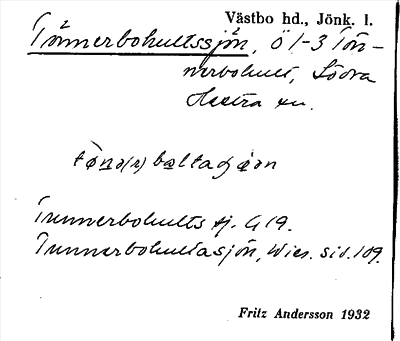 Västbo hd., Jönk. l.
Tönnerbohultssjön, Ö 1-3 Tön-
nerbohult, Södra
Hestra sn.
Tunnerbohults sj. G 19.
Tunnerbohultasjön, Wies. sid. 109.
Fritz Andersson 1932